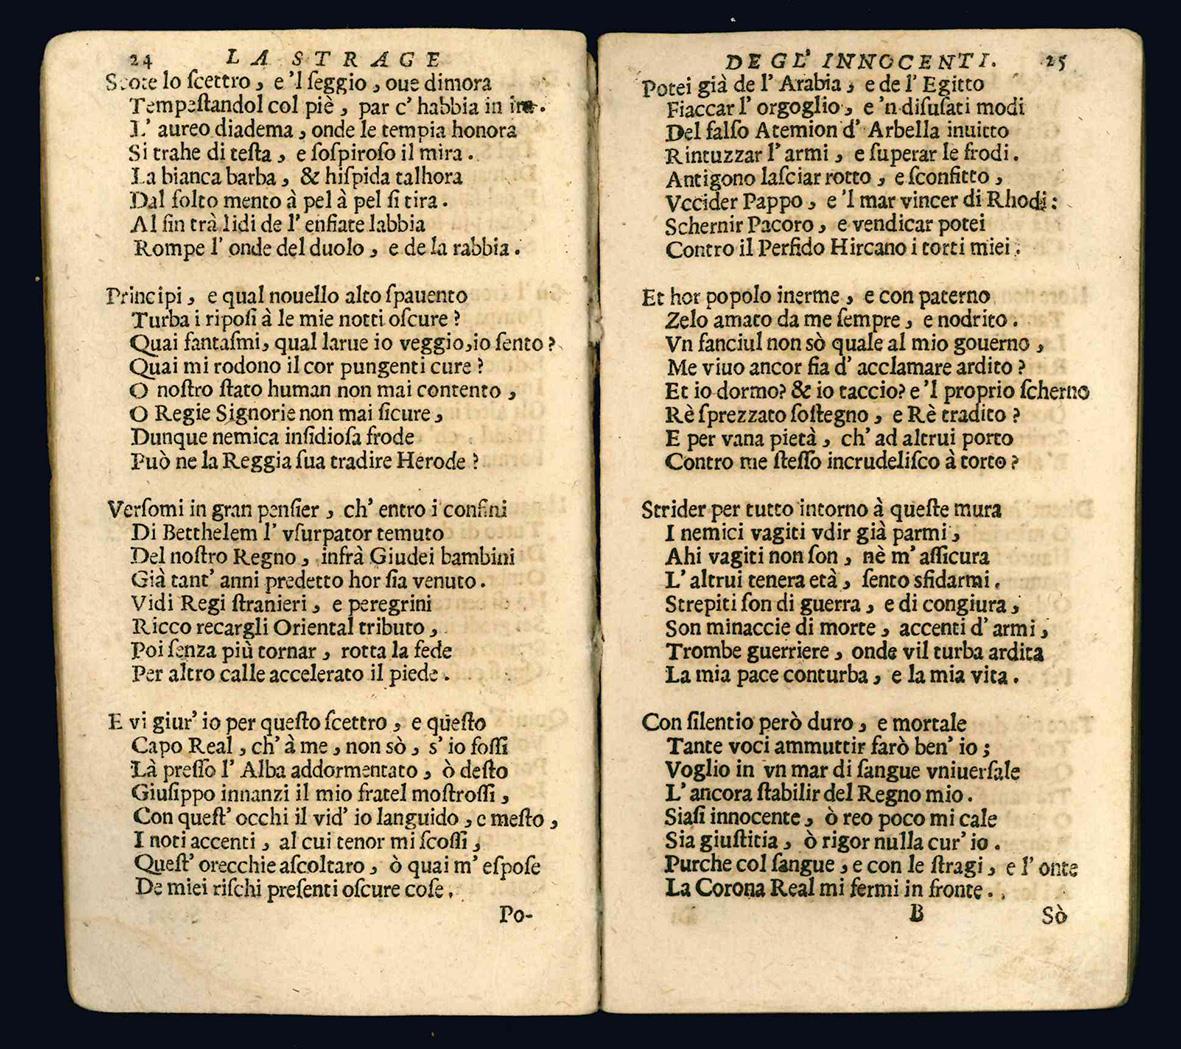 24 LA STRAGE
Scote lo ſcettro, e 'l ſeggio, oue dimora
Tempeſtandol col piè, par c' habbia in ira.
L' aureo diadema, onde le tempia honora
Si trahe di teſta, e ſoſpiroſo il mira.
La bianca barba, & hiſpida talhora
Dal folto mento à pel à pel ſi tira.
Al fin trà lidi de l' enfiate labbia
Rompe l' onde del duolo, e de la rabbia.
Principi, e qual nouello alto ſpauento
Turba i ripoſi à le mie notti oſcure?
Quai fantaſmi, qual larue io veggio, io ſento?
Quai mi rodono il cor pungenti cure?
O noſtro ſtato human non mai contento,
O Regie Signorie non mai ſicure,
Dunque nemica inſidioſa frode
Può ne la Reggia ſua tradire Herode?
Verſomi in gran penſier, ch' entro i confini
Di Betthelem l' vſurpator temuto
Del noſtro Regno, infrà Giudei bambini
Già tant' anni predetto hor ſia venuto.
Vidi Regi ſtranieri, e peregrini
Ricco recargli Oriental tributo,
Poi ſenza più tornar, rotta la fede
Per altro calle accelerato il piede.
E vi giur' io per queſto ſcettro, e queſto
Capo Real, ch' à me, non sò, s' io foſſi
Là preſſo l' Alba addormentato, ò deſto
Giuſippo innanzi il mio fratel moſtroſſi,
Con queſt' occhi il vid' io languido, e meſto,
I noti accenti, al cui tenor mi ſcoſſi,
Queſt' orecchie aſcoltaro, ò quai m' eſpoſe
De miei riſchi preſenti oſcure coſe.
Po-
DEGL' INNOCENTI. 25
Potei già de l' Arabia, e de l' Egitto
Fiaccar l' orgoglio, e 'n diſuſati modi
Del falſo Atemion d' Arbella inuitto
Rintuzzar l' armi, e ſuperar le frodi.
Antigono laſciar rotto, e ſconfitto,
Vccider Pappo, e 'l mar vincer di Rhodi:
Schernir Pacoro, e vendicar potei
Contro il Perfido Hircano i torti miei.
Et hor popolo inerme, e con paterno
Zelo amato da me ſempre, e nodrito.
Vn fanciul non sò quale al mio gouerno,
Me viuo ancor fia d' acclamare ardito?
Et io dormo? & io taccio? e 'l proprio ſcherno
Rè ſprezzato ſoſtegno, e Rè tradito?
E per vana pietà, ch' ad altrui porto
Contro me ſteſſo incrudeliſco à torto?
Strider per tutto intorno à queſte mura
I nemici vagiti vdir già parmi,
Ahi vagiti non ſon, nè m' aſſicura
L' altrui tenera età, ſento sfidarmi.
Strepiti ſon di guerra, e di congiura,
Son minaccie di morte, accenti d' armi,
Trombe guerriere, onde vil turba ardita
La mia pace conturba, e la mia vita.
Con ſilentio però duro, e mortale
Tante voci ammuttir farò ben' io;
Voglio in vn mar di ſangue vniuerſale
L' ancora ſtabilir del Regno mio.
Siaſi innocente, ò reo poco mi cale
Sia giuſtitia, ò rigor nulla cur' io.
Purche col ſangue, e con le ſtragi, e l' onte
La Corona Real mi fermi in fronte.
B Sò